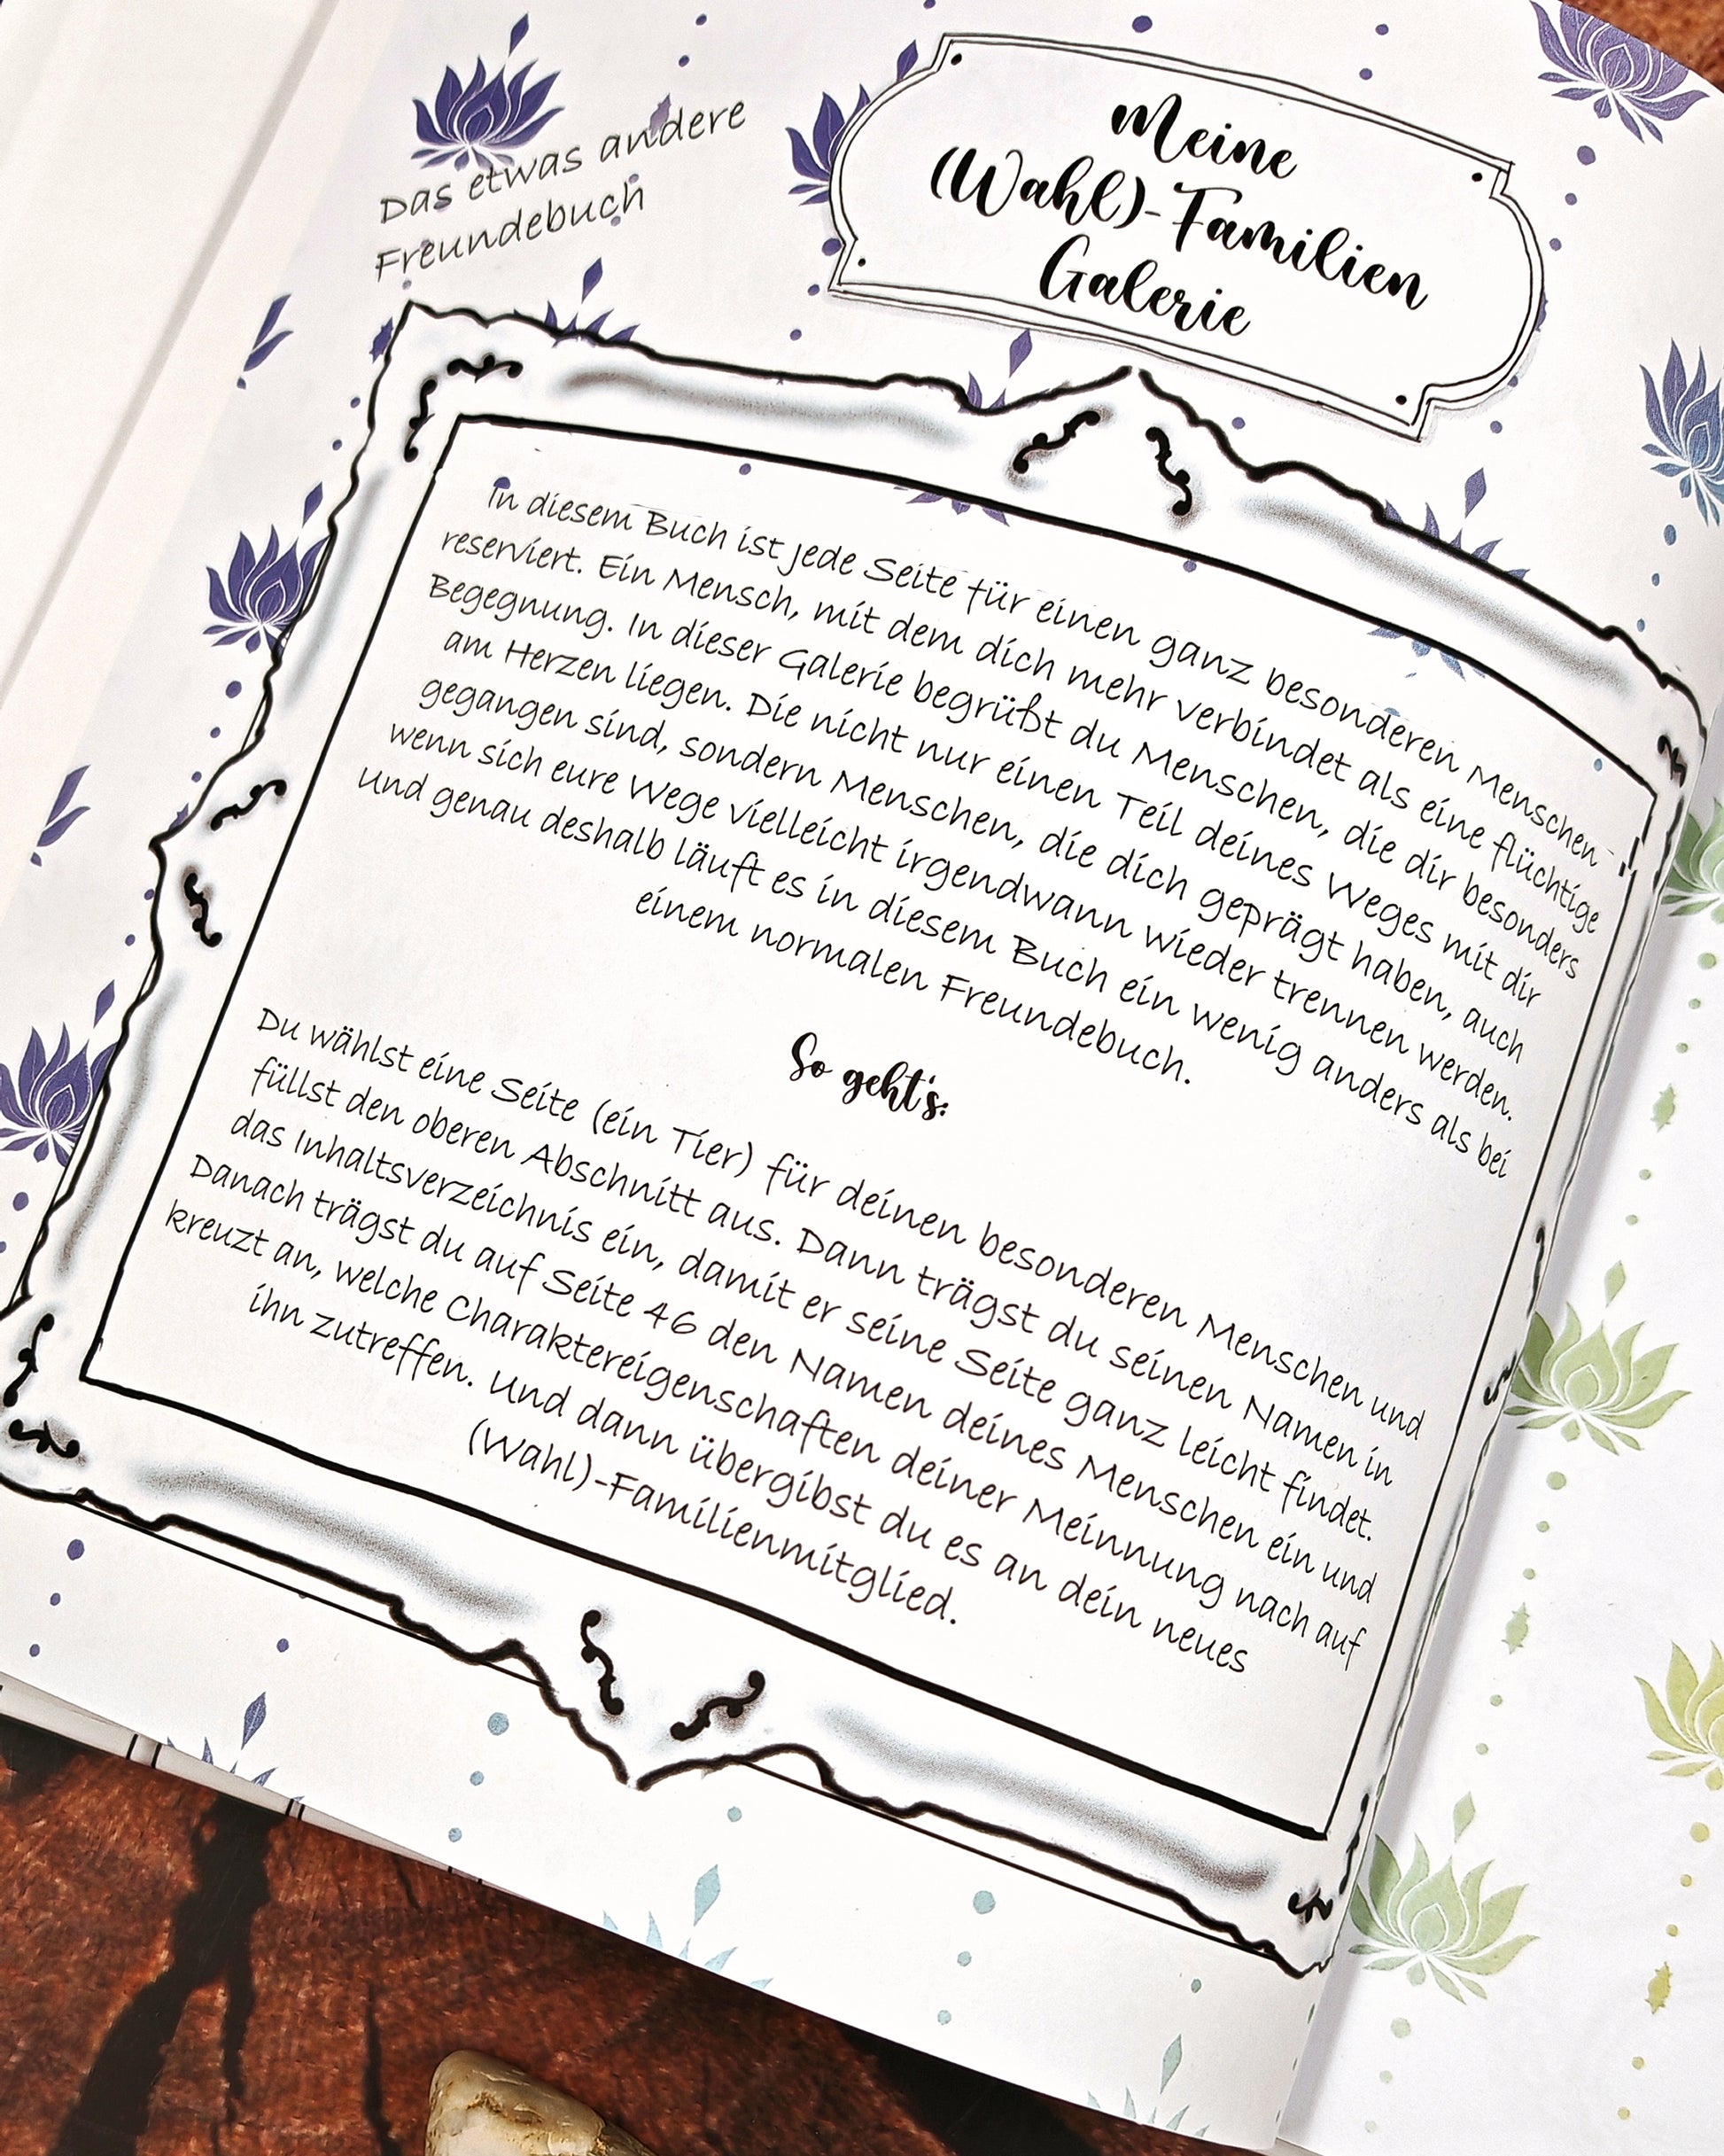 Das etwas andere
Freundebuch
Meine
(Wahl)-Familien
Galerie
In diesem Buch ist jede Seite für einen ganz besonderen Menschen
reserviert. Ein Mensch, mit dem dich mehr verbindet als eine flüchtige
Begegnung. In dieser Galerie begrüßt du Menschen, die dir besonders
am Herzen liegen. Die nicht nur einen Teil deines Weges mit dir
gegangen sind, sondern Menschen, die dich geprägt haben, auch
wenn sich eure Wege vielleicht irgendwann wieder trennen werden.
Und genau deshalb läuft es in diesem Buch ein wenig anders als bei
einem normalen Freundebuch.
So geht's:
Du wählst eine Seite (ein Tier) für deinen besonderen Menschen und
füllst den oberen Abschnitt aus. Dann trägst du seinen Namen in
das Inhaltsverzeichnis ein, damit er seine Seite ganz leicht findet.
Danach trägst du auf Seite 46 den Namen deines Menschen ein und
kreuzt an, welche Charaktereigenschaften deiner Meinnung nach auf
ihn zutreffen. Und dann übergibst du es an dein neues
(Wahl)-Familienmitglied.